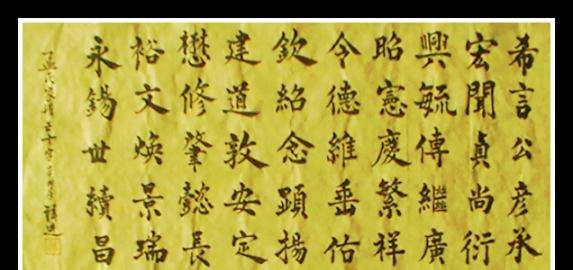 希言公彦承
宏聞貞尚衍
興毓傳繼廣
昭憲慶繁祥
令德維垂佑
欽紹念顕揚
建道敦安定
懋修肇懿長
裕文煥景瑞
永錫世績昌